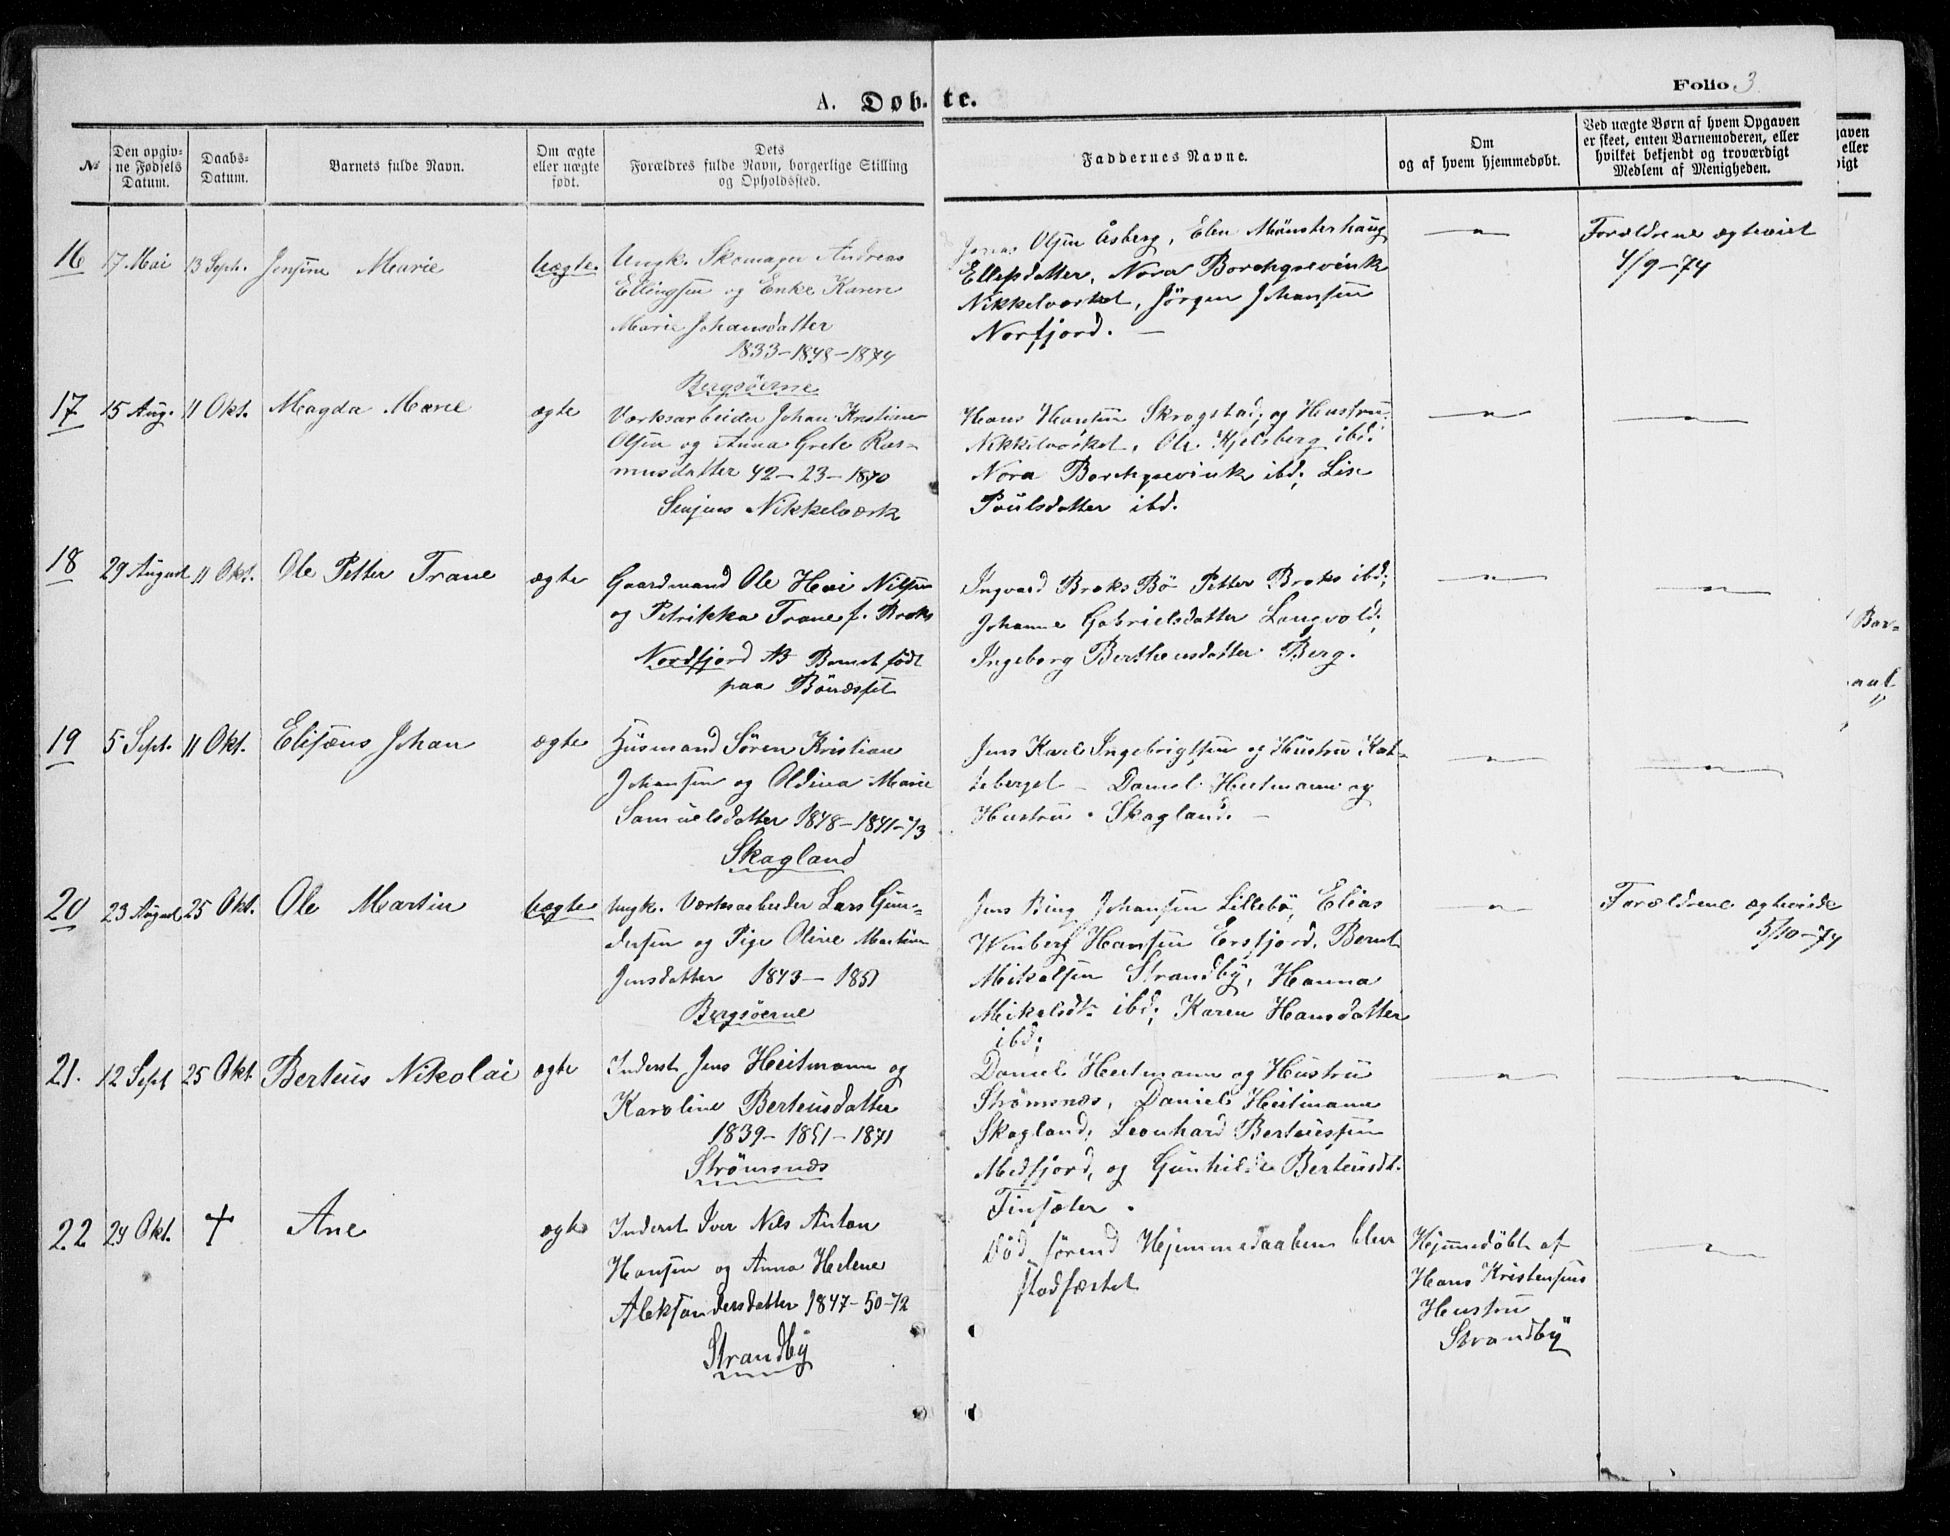 A. Døb-te.
Folio 3
№
Den opgivne Fødsels Datum.
Daabs-Datum.
Barnets fulde Navn.
Om ægte eller uægte født.
Dets
Forældres fulde Navn, borgerlige Stilling
og Opholdssted.
Faddernes Navne.
Om
og af hvem hjemmedøbt.
Ved uægte Børn af hvem Opgaven
er skeet, enten Barnemoderen, eller
hvilket bekjendt og troværdigt
Medlem af Menigheden.
16 17 Mai 13 Sept. Jensine Marie Uægte.
Ungk. Skomager Andreas
Ellingsen og Enke Karen
Marie Johansdatter
1833-1848-1874
Bergsøerne
Olsen Åsberg, Elen Mønsterhaug
Ellefsdatter, Nora Borchgrevink
Nikkelværket, Jørgen Johansen
Norfjord. —
— " —
Forældrene ægteviet
4/9-74
17 15 Aug. 11 Okt. Magda Marie ægte
Værksarbeider Johan Kristian
Olsen og Anna Grete Ras-
musdatter 42-23-1870
Senjens Nikkelværk
Hans Hansen Skrogstad, og Hustru
Nikkelværket, Ole Kjelsberg ibd.
Nora Borchgrevink ibd; Lise
Poulsdatter ibd.
— " —
— " —
18 29 August 11 Okt. Ole Petter Trane ægte
Gaardmand Ole Hoi Nilsen
og Petrikka Trane f. Broks
Nordfjord NB Barnet født
paa Bönæsset
Ingvard Broks Bö Petter Broks ibd;
Johanne Gabrielsdatter Langvold;
Ingeborg Berthensdatter Berg.
— " —
— " —
19 5 Sept. 11 Okt. Elisæus Johan ægte
Husmand Søren Kristian
Johansen og Oldina Marie
Samuelsdatter 1848-1841-73
Skagland
Jens Karl Ingebrigtsen og Hustru Kat-
teberget — Daniel Heitmann og
Hustru. Skagland. —
— " —
— " —
20 23 August 25 Okt. Ole Martin Uægte
Ungk. Værksarbeider Lars Gun-
dersen og Pige Oline Martine
Jensdatter 1843-1851
Bergsøerne
Jens Bing Johansen Lillebö, Elias
Winberg Hansen Ersfjord, Bernt
Mikalsen Strandby, Hanna
Mikalsdt. ibd; Karen Hansdatter
ibd;
— " —
Forældrene ægteviede
5/10-74
21. 12 Sept 25 Okt. Berteus Nikolai ægte
Inderst Jens Heitmann og
Karoline Berteusdatter
1839-1851-1871
Strømsnæs
Daniel Heitmann og Hustru
Strømsnæs, Daniel Heitmann
Skagland, Leonhard Berteussen
Medfjord, og Gunhilde Berteusdt.
Finsæter.
— " —
— " —
22 24 Okt. † Ane ægte
Inderst Iver Nils Anton
Hansen og Anna Helene
Aleksandersdatter 1847-50-72
Strandby
Död førend Hjemmedaaben blev
stadfæstet
Hjemmedöbt af
Hans Kristensens
Hustru
Strandby
— " —